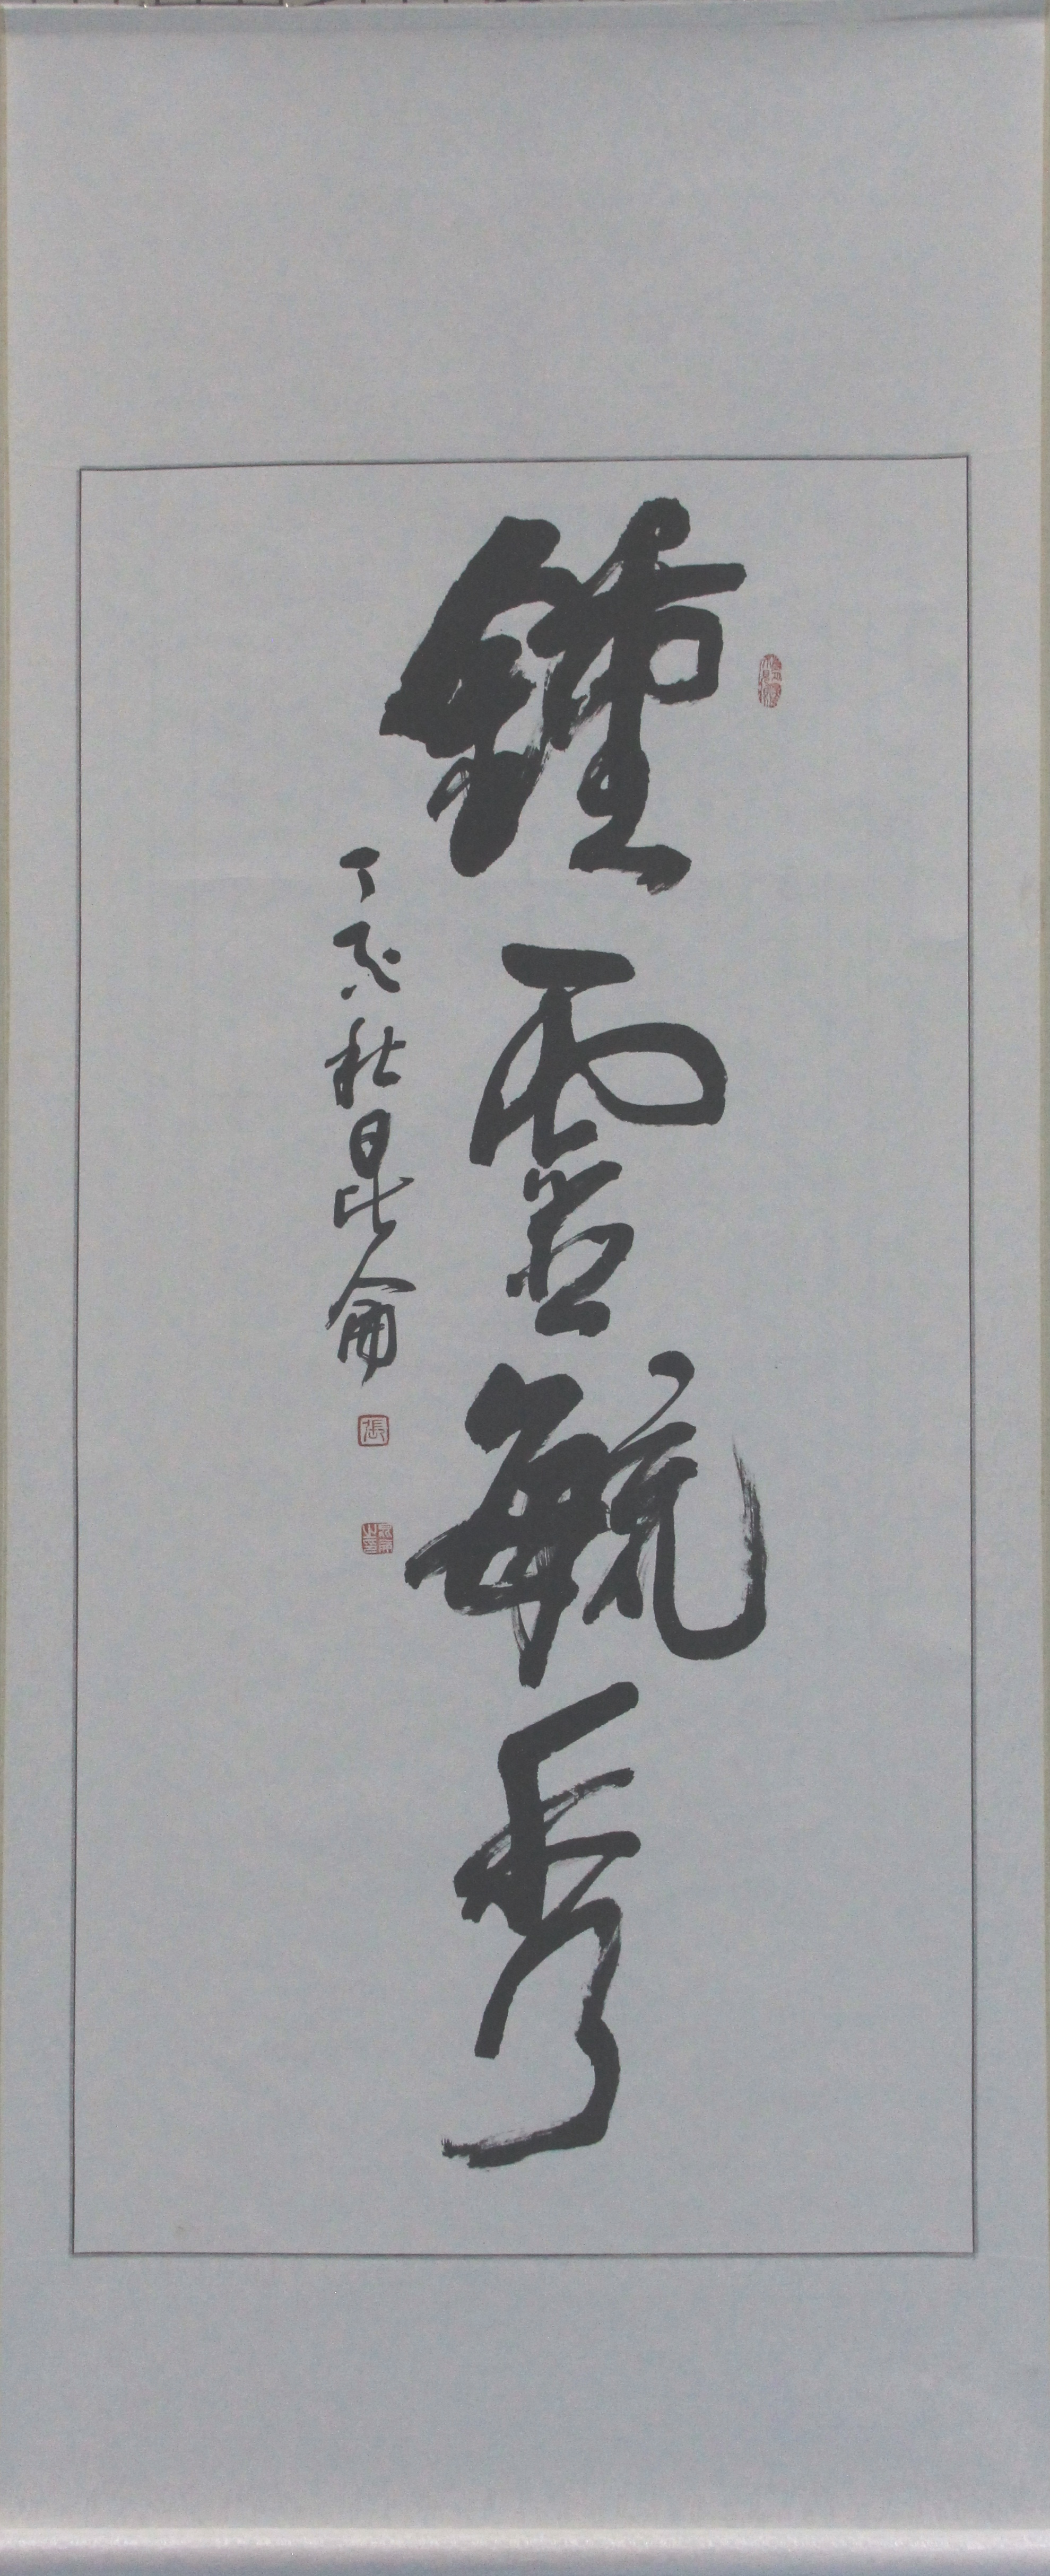 鍾靈毓秀
丁亥秋昆侖
張